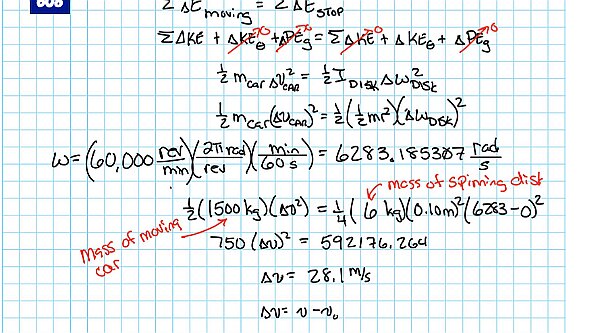 Σ ΔE moving = Σ ΔE STOP
ΣΔKE + ΔKEθ→0 + ΔPEg→0 = ΣΔKE→0 + ΔKEθ + ΔPEg→0
½ m car Δv²CAR = ½ I DISK Δω²DISK
½ m car (ΔvCAR)² = ½(½mr²)(ΔωDISK)²
ω = (60,000 rev/min)(2π rad/rev)(min/60 s) = 6283.185307 rad/s
mass of spinning disk
½(1500 kg)(Δv²) = ¼(6 kg)(0.10m)²(6283-0)²
Mass of moving car
750 (Δv)² = 592176.264
Δv = 28.1 m/s
Δv = v - v₀